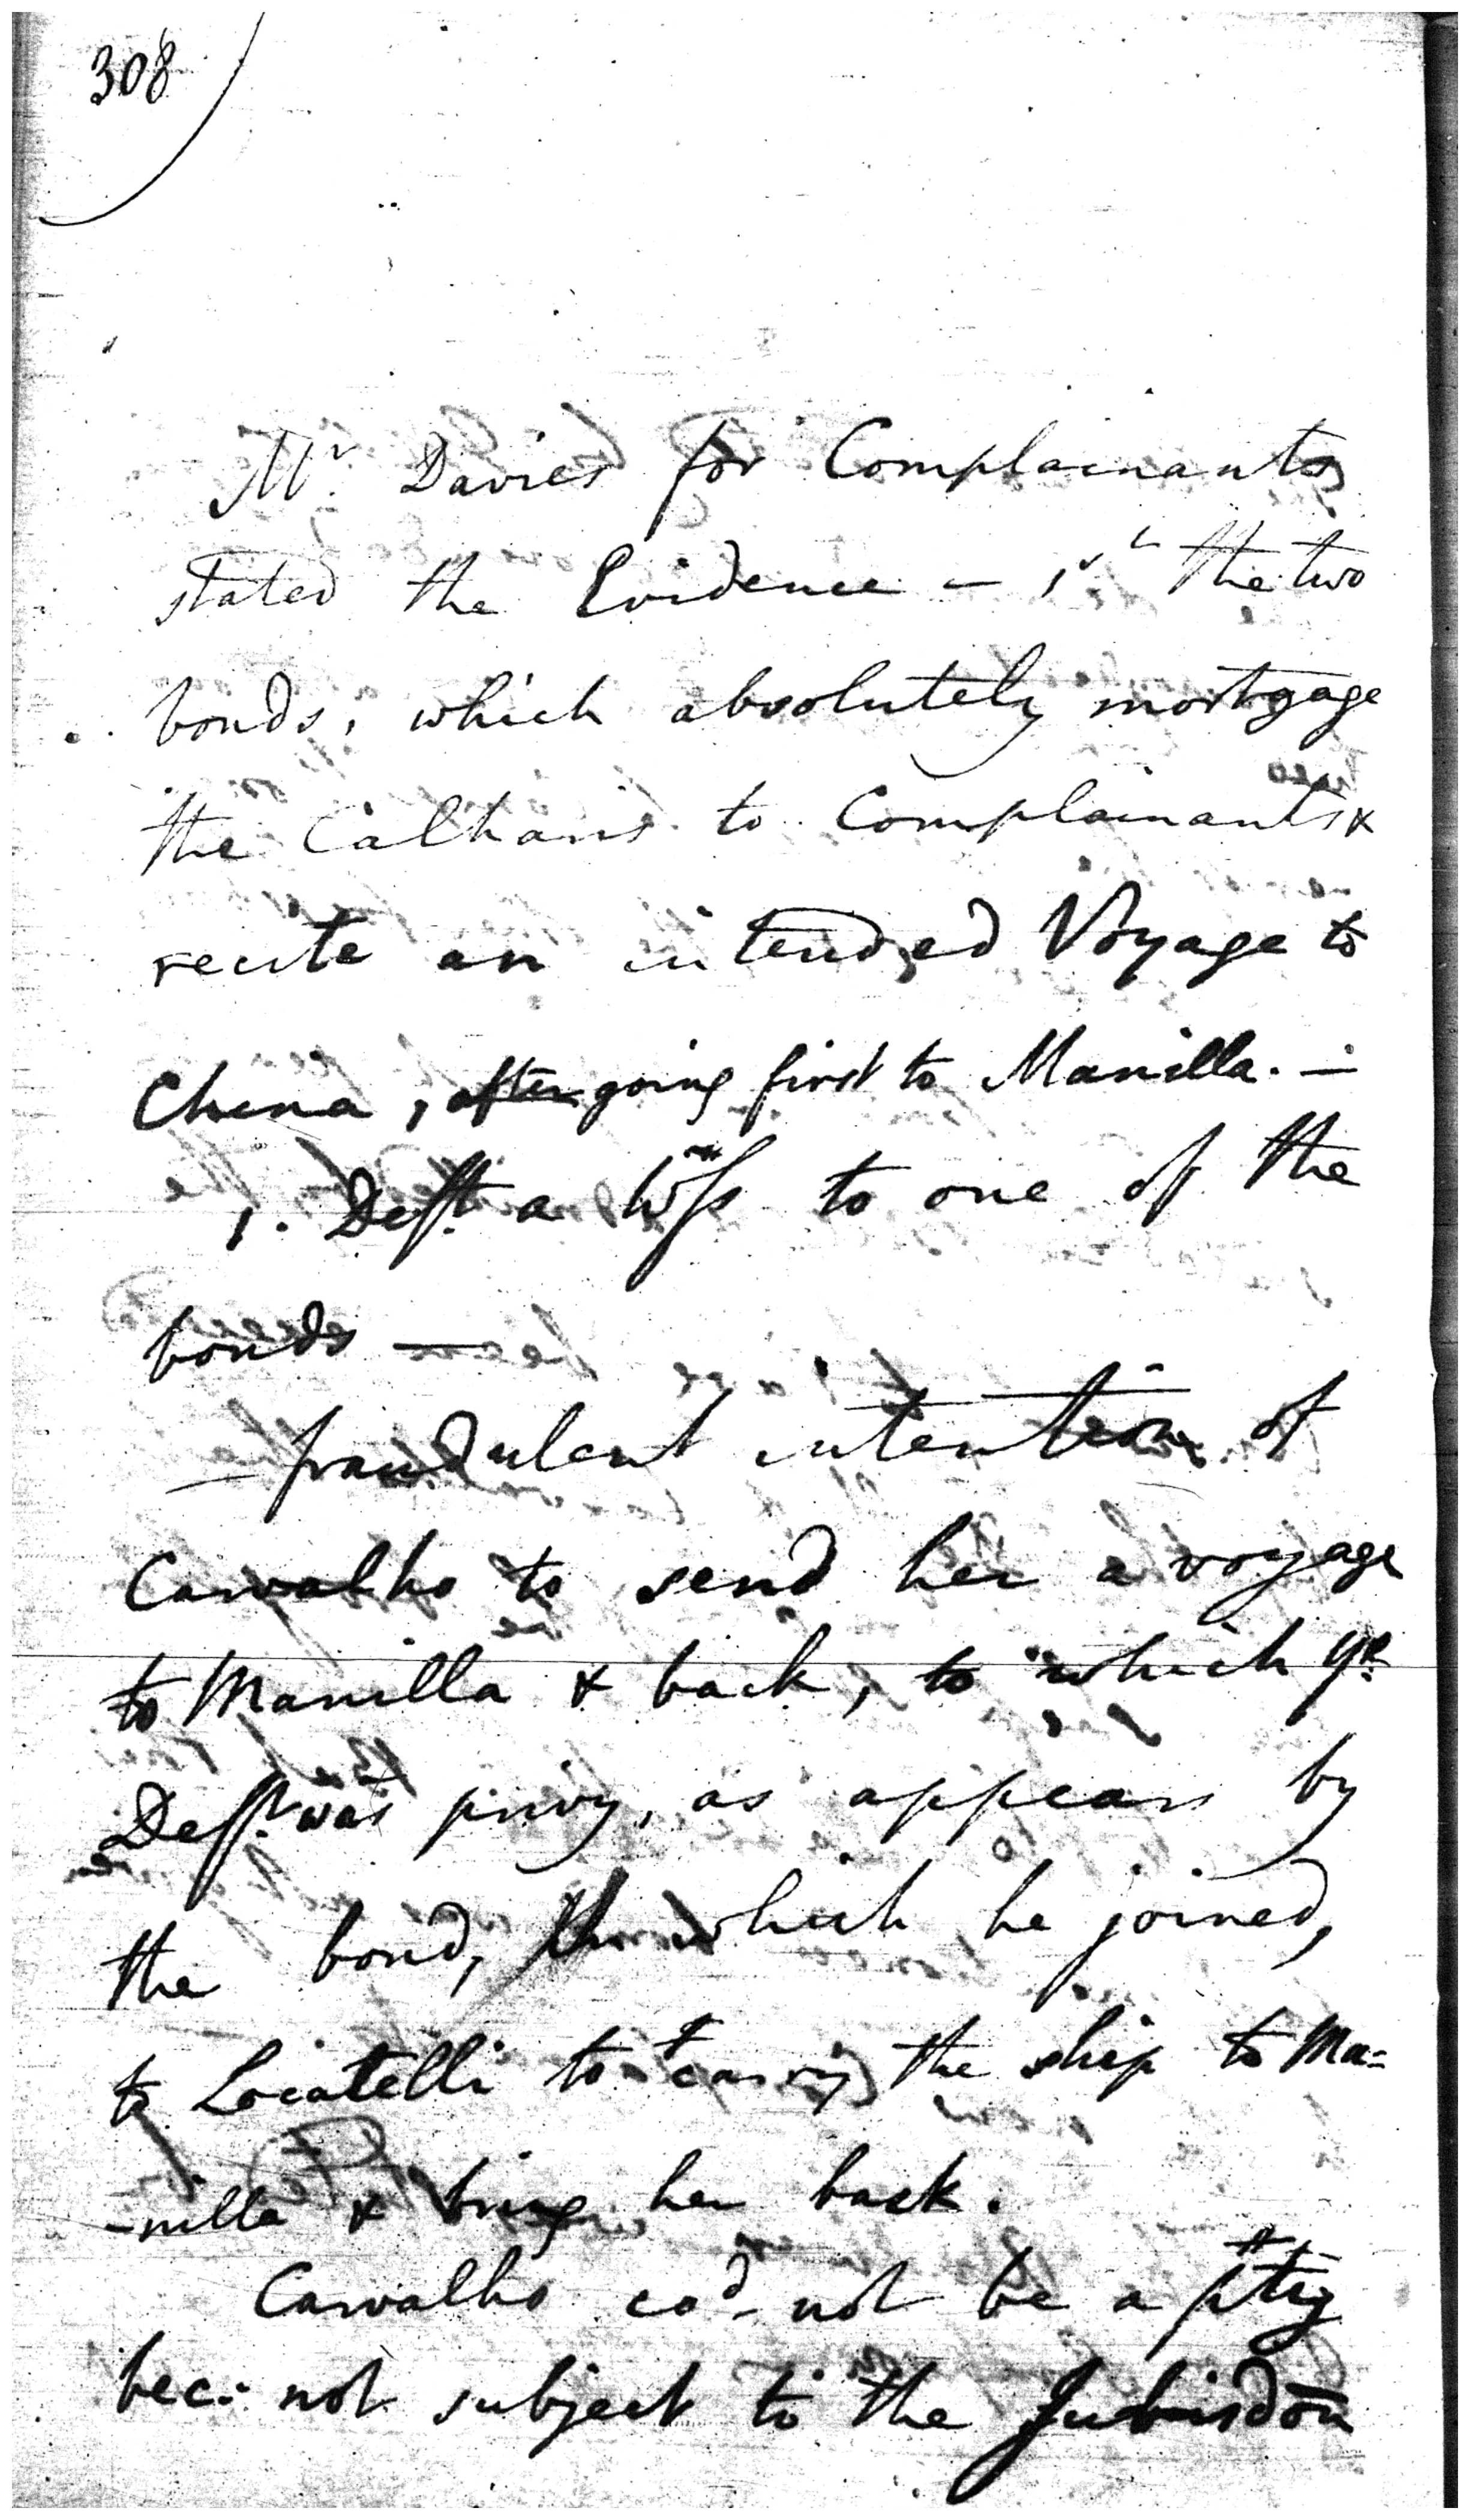 308
Mr. Davies for Complainants
stated the Evidence – 1st the two
bonds, which absolutely mortgage
the to Complainants &
recite an intended Voyage to
China, after going first to Manilla. –
1. Deft. a Wss to one of the
bonds —
– fraudulent intention of
Carvalho to send her a voyage
to Manilla & back, to which ye.
Deft. was privy, as appears by
the bond, which he joined,
to Locatelli to carry the ship to Ma=
-nilla & bring her back.
Carvalho cod. not be a pty
bec: not subject to the Jurisdon